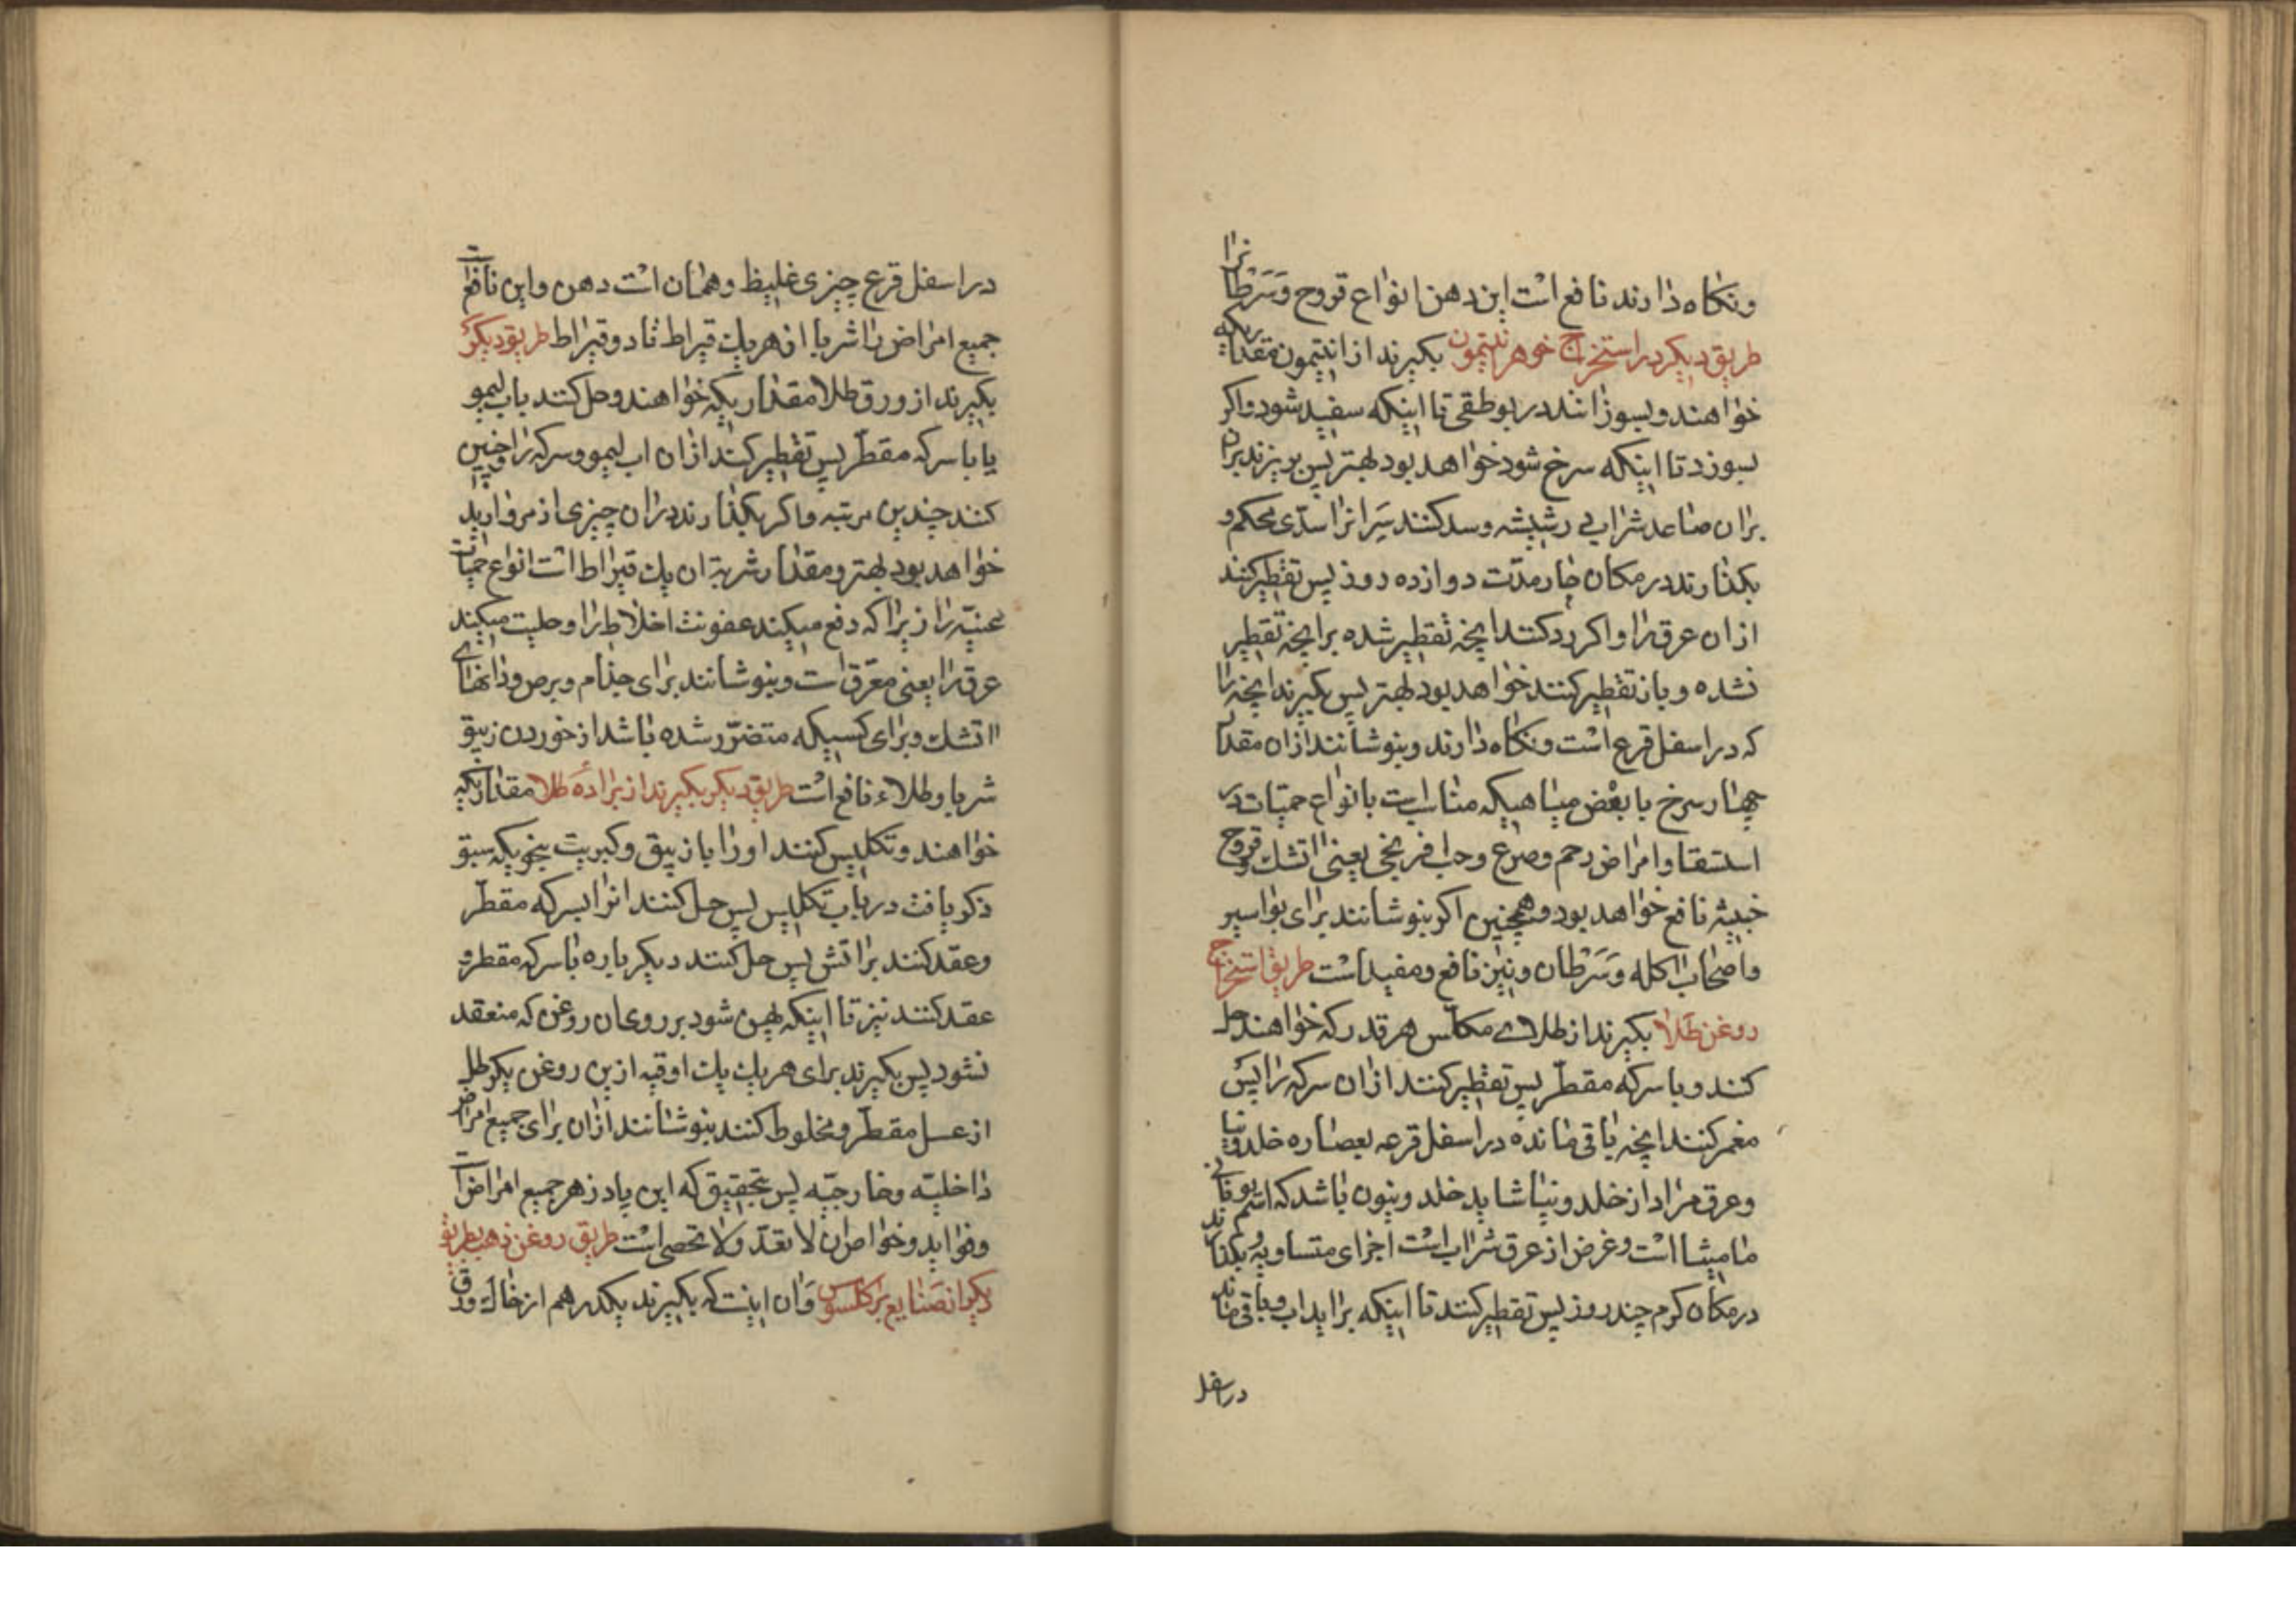 ونکاه دارند نافع است این دهن انواع قروح وسرطانرا
طریق دیکر در استخراج جوهر انتیمون بکیرند از انتیمون مقداریکه
خواهند وبسوزانند در بوطقی تا اینکه سفید شود واکر
بسوزد تا اینکه سرخ شود خواهد بود بهتر پس بریزند بران
بران صاعد شراب در شیشه وسد کنند سر انرا سدی محکم و
بکذارند در مکان حار مدّت دوازده روز پس تقطیر کنند
ازان عرق را واکر رد کنند انچه تقطیر شده بر انچه تقطیر
نشده وباز تقطیر کنند خواهد بود بهتر پس بکیرند انچه را
که در اسفل قرع است ونکاه دارند وبنوشانند ازان مقدار
چهار سرخ با بعض میاهیکه مناسبت بانواع حمیات در
استسقا وامراض رحم وصرع وحب افرنجی یعنی اتشك وقروح
خبیثه نافع خواهد بود وهمچنین اکر بنوشانند برای بواسیر
واصحاب اکله وسرطان ونیز نافع ومفید است طریق استخراج
روغن طلا بکیرند از طلای مکلّس هر قدر که خواهند حل
کنند وبا سرکه مقطّر پس تقطیر کنند ازان سرکه را پس
مغمر کنند انچه باقی مانده در اسفل قرعه بعصاره خلدونیا
وعرق مراد از خلدونیا شاید خلدونیون باشد که اسم یونانی
مامیشا است وغرض از عرق شراب است اجزای متساویه وبکذارند
در مکان کرم چند روز پس تقطیر کنند تا اینکه براید اب وباقی ماند
در اسفل
در اسفل قرع چیزی غلیظ وهمان است دهن واین نافع است
جمیع امراض را شربا از هر یك قیراط تا دو قیراط طریق دیکر
بکیرند از ورق طلا مقداریکه خواهند وحل کنند باب لیمو
یا با سرکه مقطّر پس تقطیر کنند ازان اب لیمو وسرکه را وچنین
کنند چندین مرتبه واکر بکذارند دران چیزی از مروارید
خواهد بود بهتر ومقدار شربة ان یك قیراط است انواع حمیات
عنیّه را زیرا که دفع میکند عفونت اخلاط را وجلیت میکند
عرق را یعنی معرّق است وبنوشانند برای جذام وبرص ودانهای
اتشك وبرای کسیکه متضرّر شده باشد از خوردن زیبق
شربا وطلاء نافع است طریق دیکر بکیرند از برادهٔ طلا مقداریکه
خواهند وتکلیس کنند اورا با زیبق وکبریت بنحویکه سبق
ذکر یافت در باب تکلیس پس حل کنند انرا بسرکه مقطّر
وعقد کنند بر اتش پس حل کنند دیکر باره با سرکه مقطر و
عقد کنند نیز تا اینکه پهن شود بر روی ان روغن که منعقد
نشود پس بکیرند برای هر یك یك اوقیه ازین روغن یکرطل
از عسل مقطّر ومخلوط کنند بنوشانند ازان برای جمیع امراض
داخلیّه وخارجیّه پس بتحقیق که این پادزهر جمیع امراض است
وفواید وخواص ان لا تعدّ ولا تحصی است طریق روغن ذهب بطریق
دیکر از صنایع براکلسوس وان اینست که بکیرند یکدرهم از خاك ورق